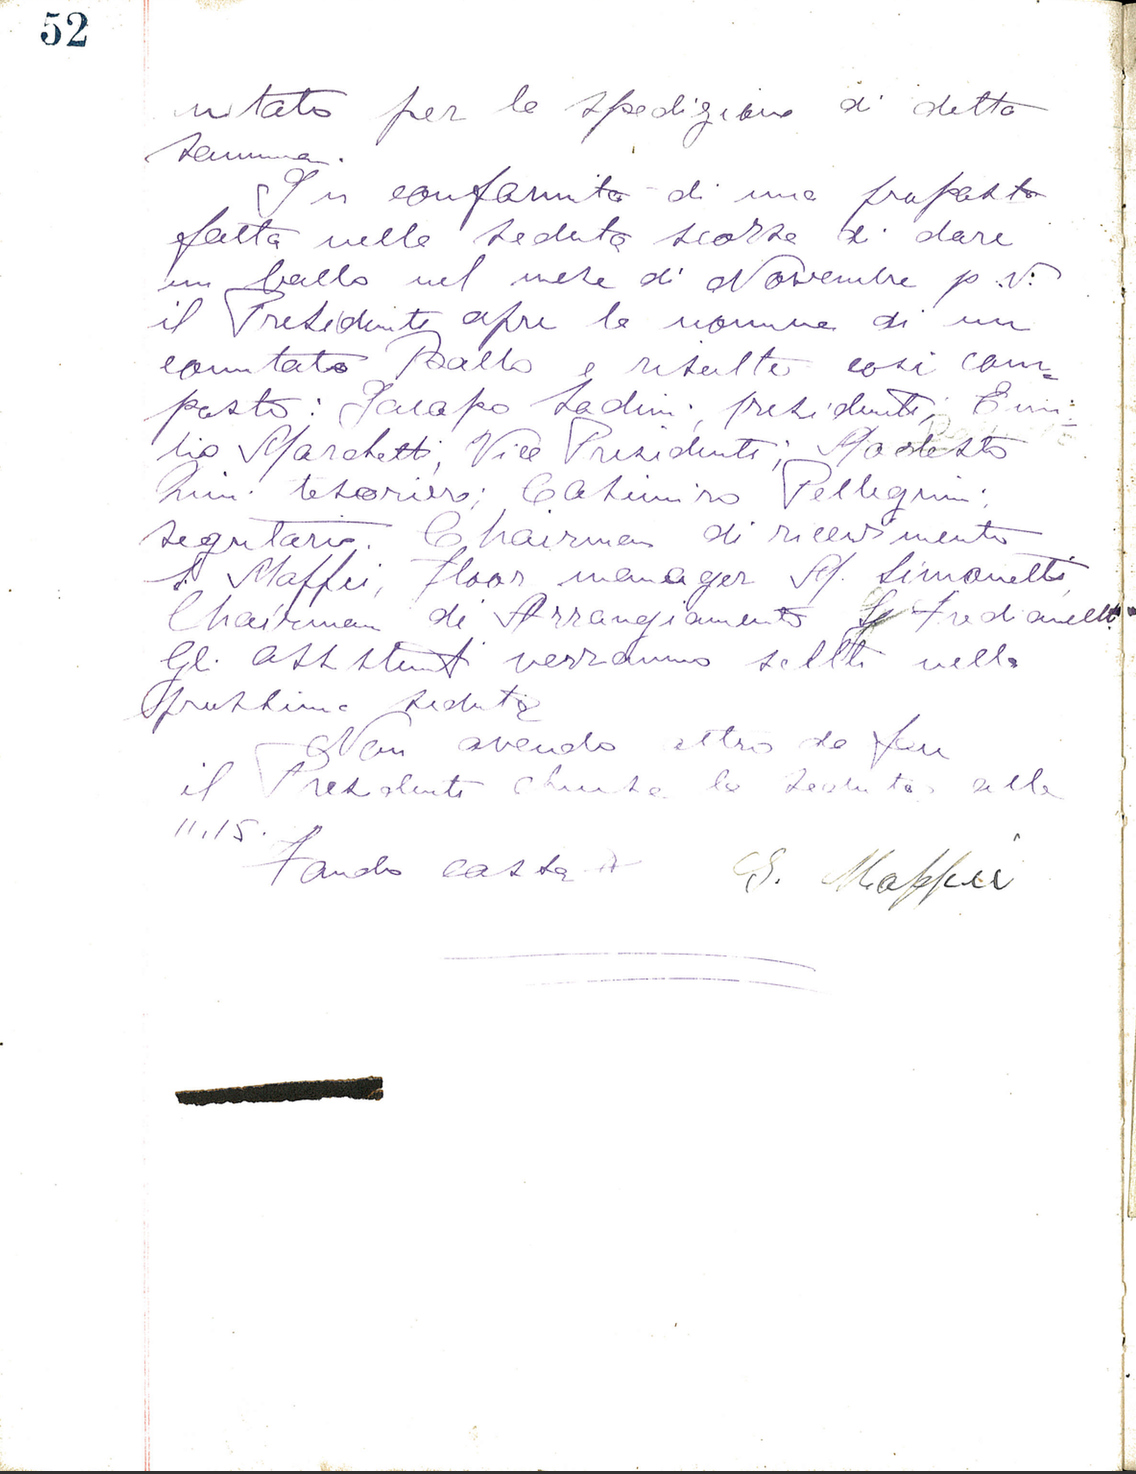 52
mitato per la spedizione di detta
somma.
In conformità di una proposta
fatta nella seduta scorsa di dare
un ballo nel mese di Novembre p.v.
il Presidente apre la nomina di un
comitato Ballo e risulta così com=
posto: Jacopo Ladini, presidente; Emi-
lio Marchetti, Vice Presidente; Modesto
tesoriere; Casimiro Pellegrini;
segretario. Chairman di ricevimento
S. Maffei, Floor manager M. Simonetti,
Chairman di Arrangiamento Fredianelli
Gli assistenti verranno scelti nella
prossima seduta
Non avendo altro da fare
il Presidente chiuse la seduta alle
11.15.
Fondo cassa G. Maffei